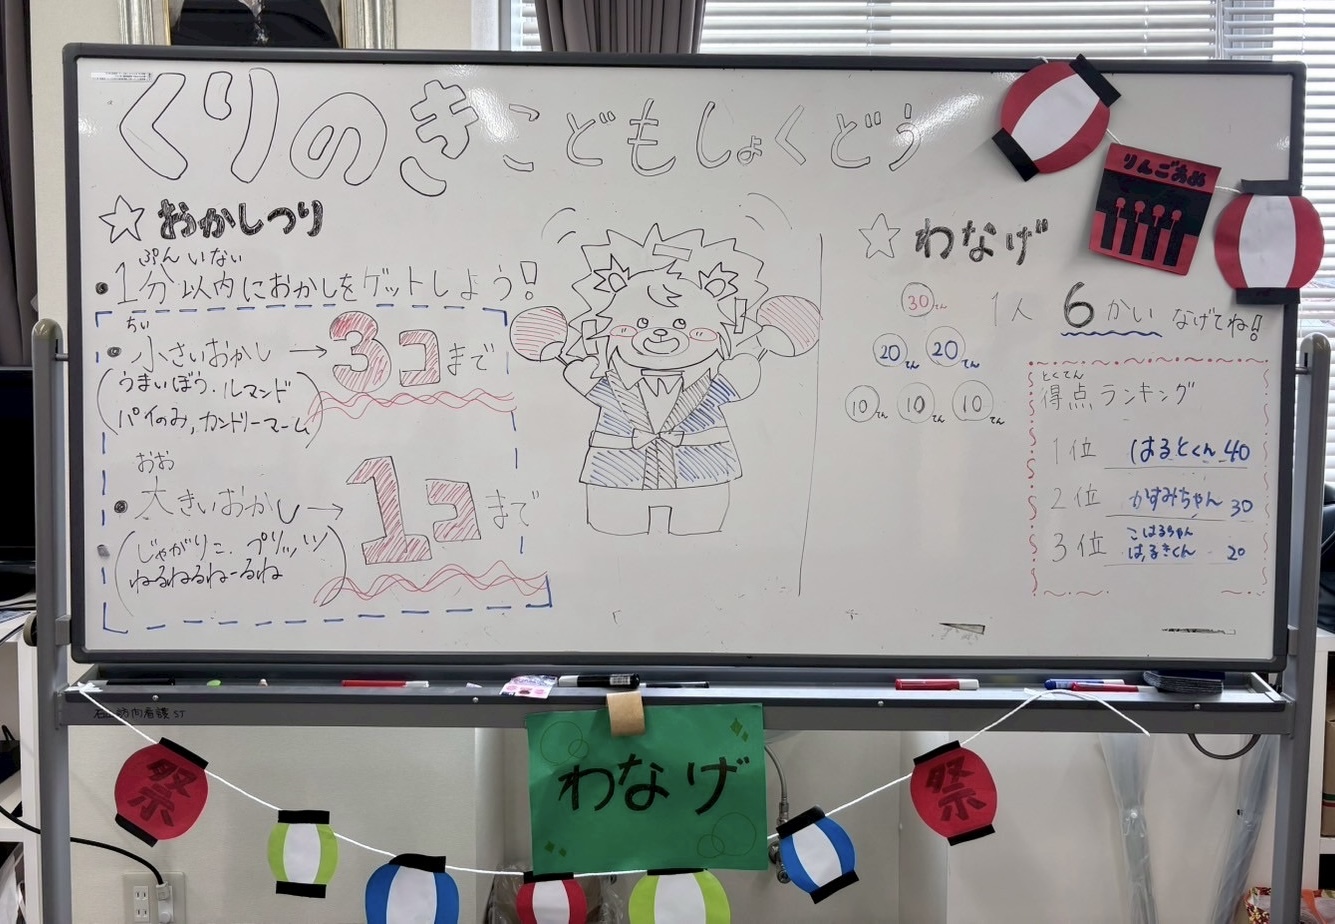 くりのきこどもしょくどう
☆おかしつり
ぷん いない
・1分以内におかしをゲットしよう!
ちい
・小さいおかし→3コまで
(うまいぼう、ルマンド
パイのみ,カントリーマーム)
おお
・大きいおかし→1コまで
(じゃがりこ、プリッツ
ねるねるねーるね)
☆わなげ
30てん
20てん 20てん
10てん 10てん 10てん
1人 6かい なげてね!
とくてん
得点ランキング
1位 はるとくん 40
2位 かすみちゃん 30
3位 こはるちゃん
はるきくん 20
りんごあめ
わなげ
祭
祭